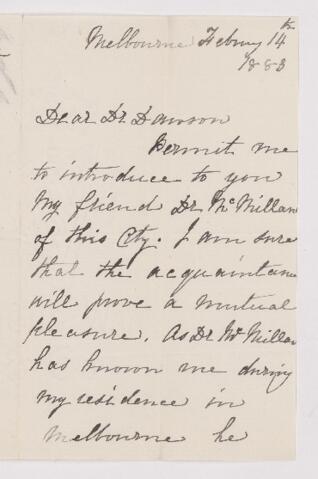 Melbourne Febury 14th
1883
Dear Dr Dawson
Permit me
to introduce to you
My friend Dr McMillan
of this City. I am sure
that the acquaintance
will prove a mutual
pleasure. As Dr McMillan
has known me during
my residence in
Melbourne he